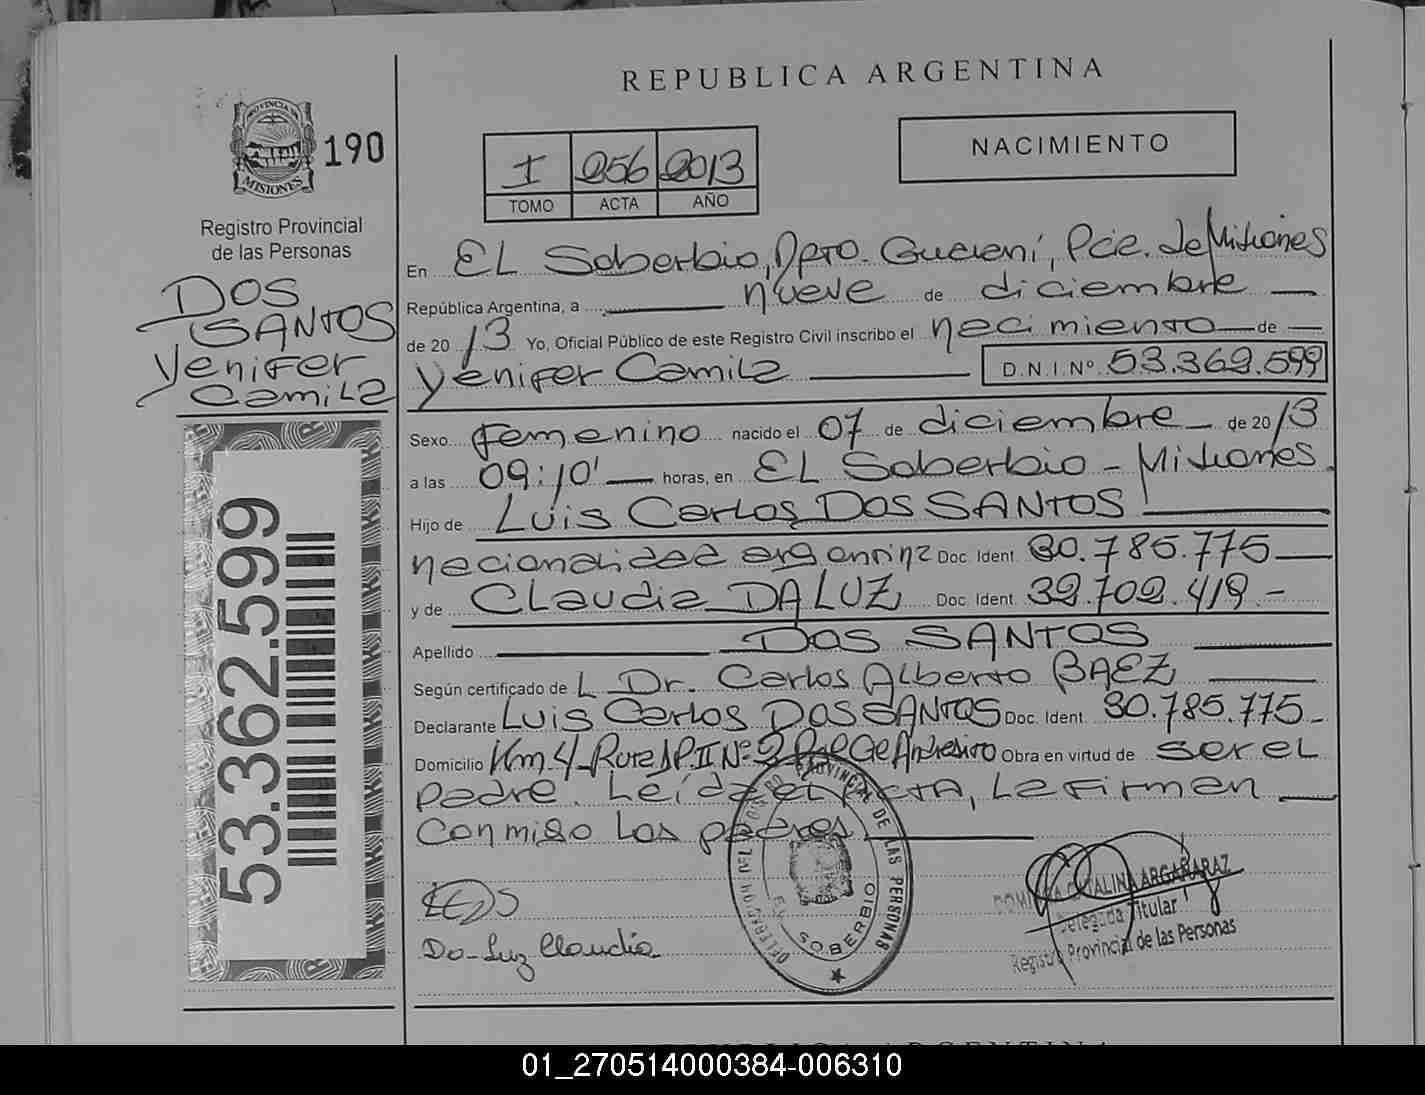 REPUBLICA ARGENTINA
PROVINCIA DE
MISIONES
190
Registro Provincial
de las Personas
DOS
SANTOS
Yenifer
Camila
53.362.599
I 256 2013
TOMO ACTA AÑO
NACIMIENTO
En EL Soberbio, Dpto. Guaraní, Pcia. de Misiones
República Argentina, a nueve de diciembre
de 2013 Yo, Oficial Público de este Registro Civil inscribo el nacimiento de
Yenifer Camila D.N.I. Nº 53.362.599
Sexo femenino nacido el 07 de diciembre de 2013
a las 09:10' horas, en EL Soberbio - Misiones.
Hijo de Luis Carlos DOS SANTOS
nacionalidad argentina Doc. Ident. 30.785.775
y de Claudia DA LUZ Doc. Ident. 39.702.419.-
Apellido DOS SANTOS
Según certificado de L Dr. Carlos Alberto BAEZ
Declarante Luis Carlos DOS SANTOS Doc. Ident. 30.785.775-
Domicilio Km. 4 - Ruta P. II Nº 2 Ge Andresito Obra en virtud de ser el
padre. Leída el acta, la firman
conmigo los padres
DELEGACION DEL REGISTRO PROVINCIAL DE LAS PERSONAS
EL SOBERBIO
LCDS
Da-Luz Claudia
CATALINA ARGAÑARAZ
Delegada Titular
Registro Provincial de las Personas
REPUBLICA ARGENTINA
01_270514000384-006310